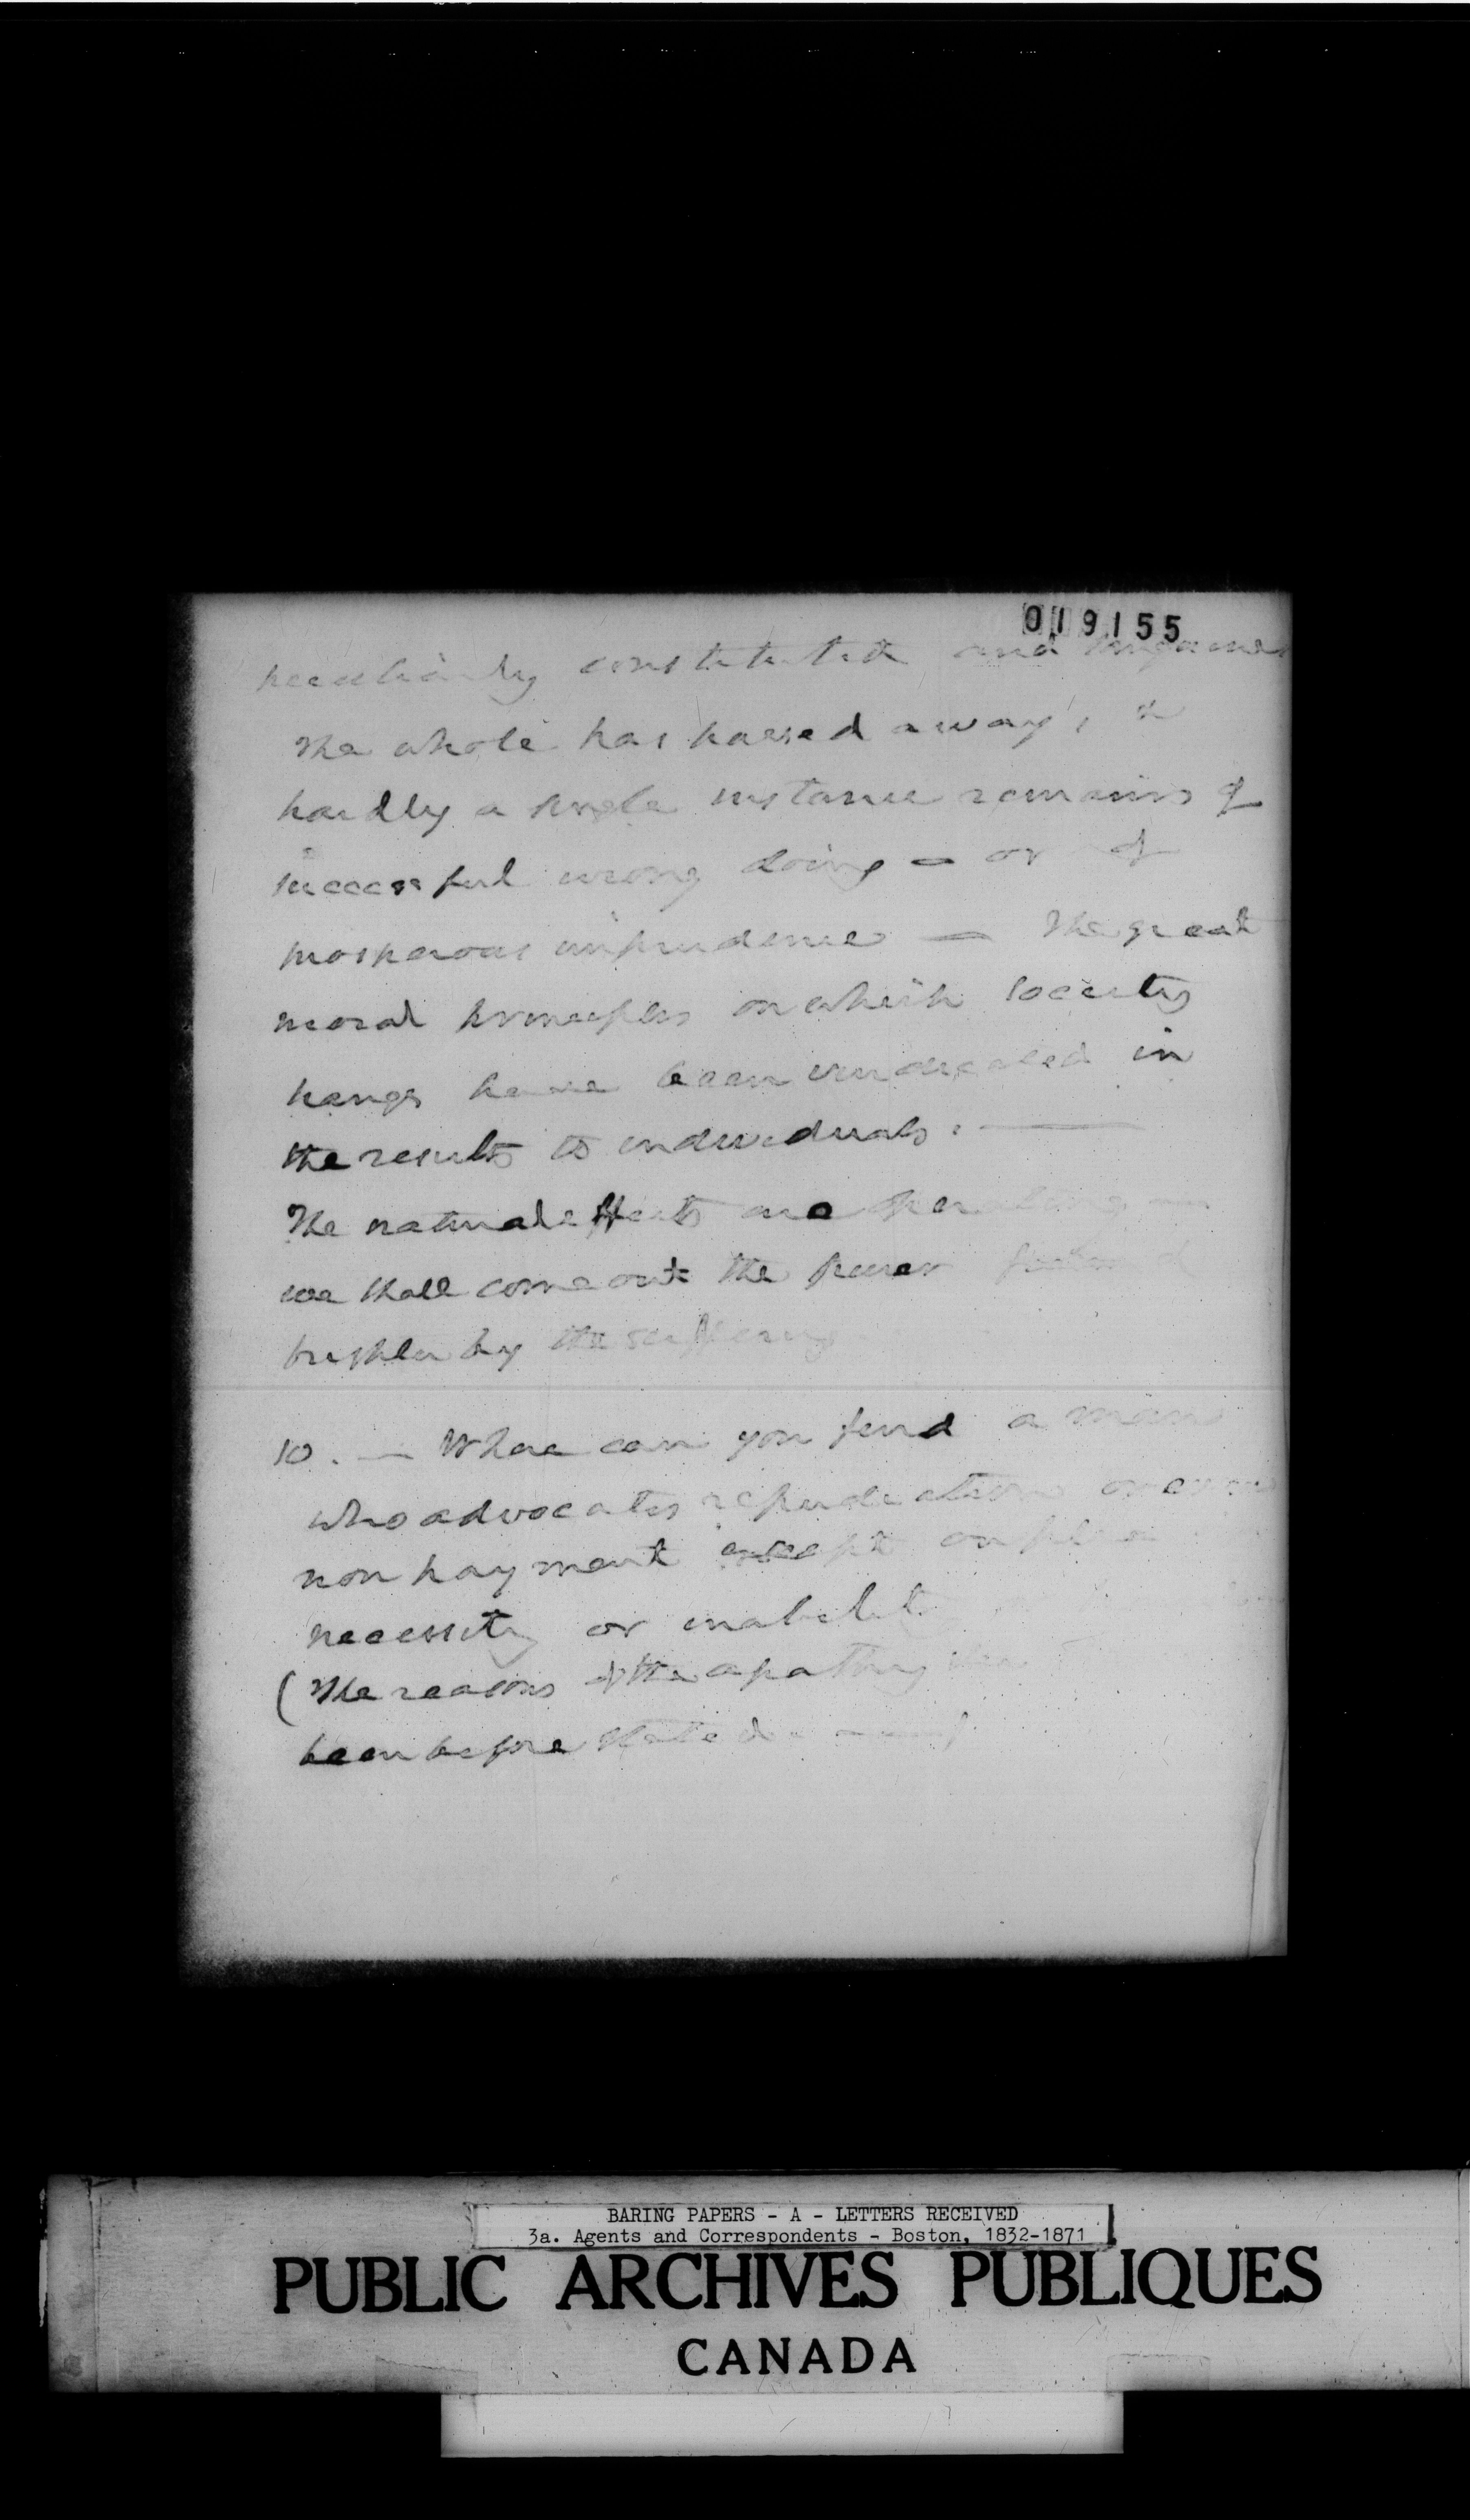 019155
peculiarly constituted and
The whole has passed away, &
hardly a single instance remains of
successful wrong doing - or of
prosperous imprudence - The great
moral principles on which society
hangs have been vindicated in
the results to individuals.
The natural effects are
we shall come out the purer
brighter by the suffering
10. - Where can you find a man
who advocates repudiation or even
non payment except on
necessity or inability
(The reasons of the apathy
been before stated
BARING PAPERS - A - LETTERS RECEIVED
3a. Agents and Correspondents - Boston, 1832-1871
PUBLIC ARCHIVES PUBLIQUES
CANADA